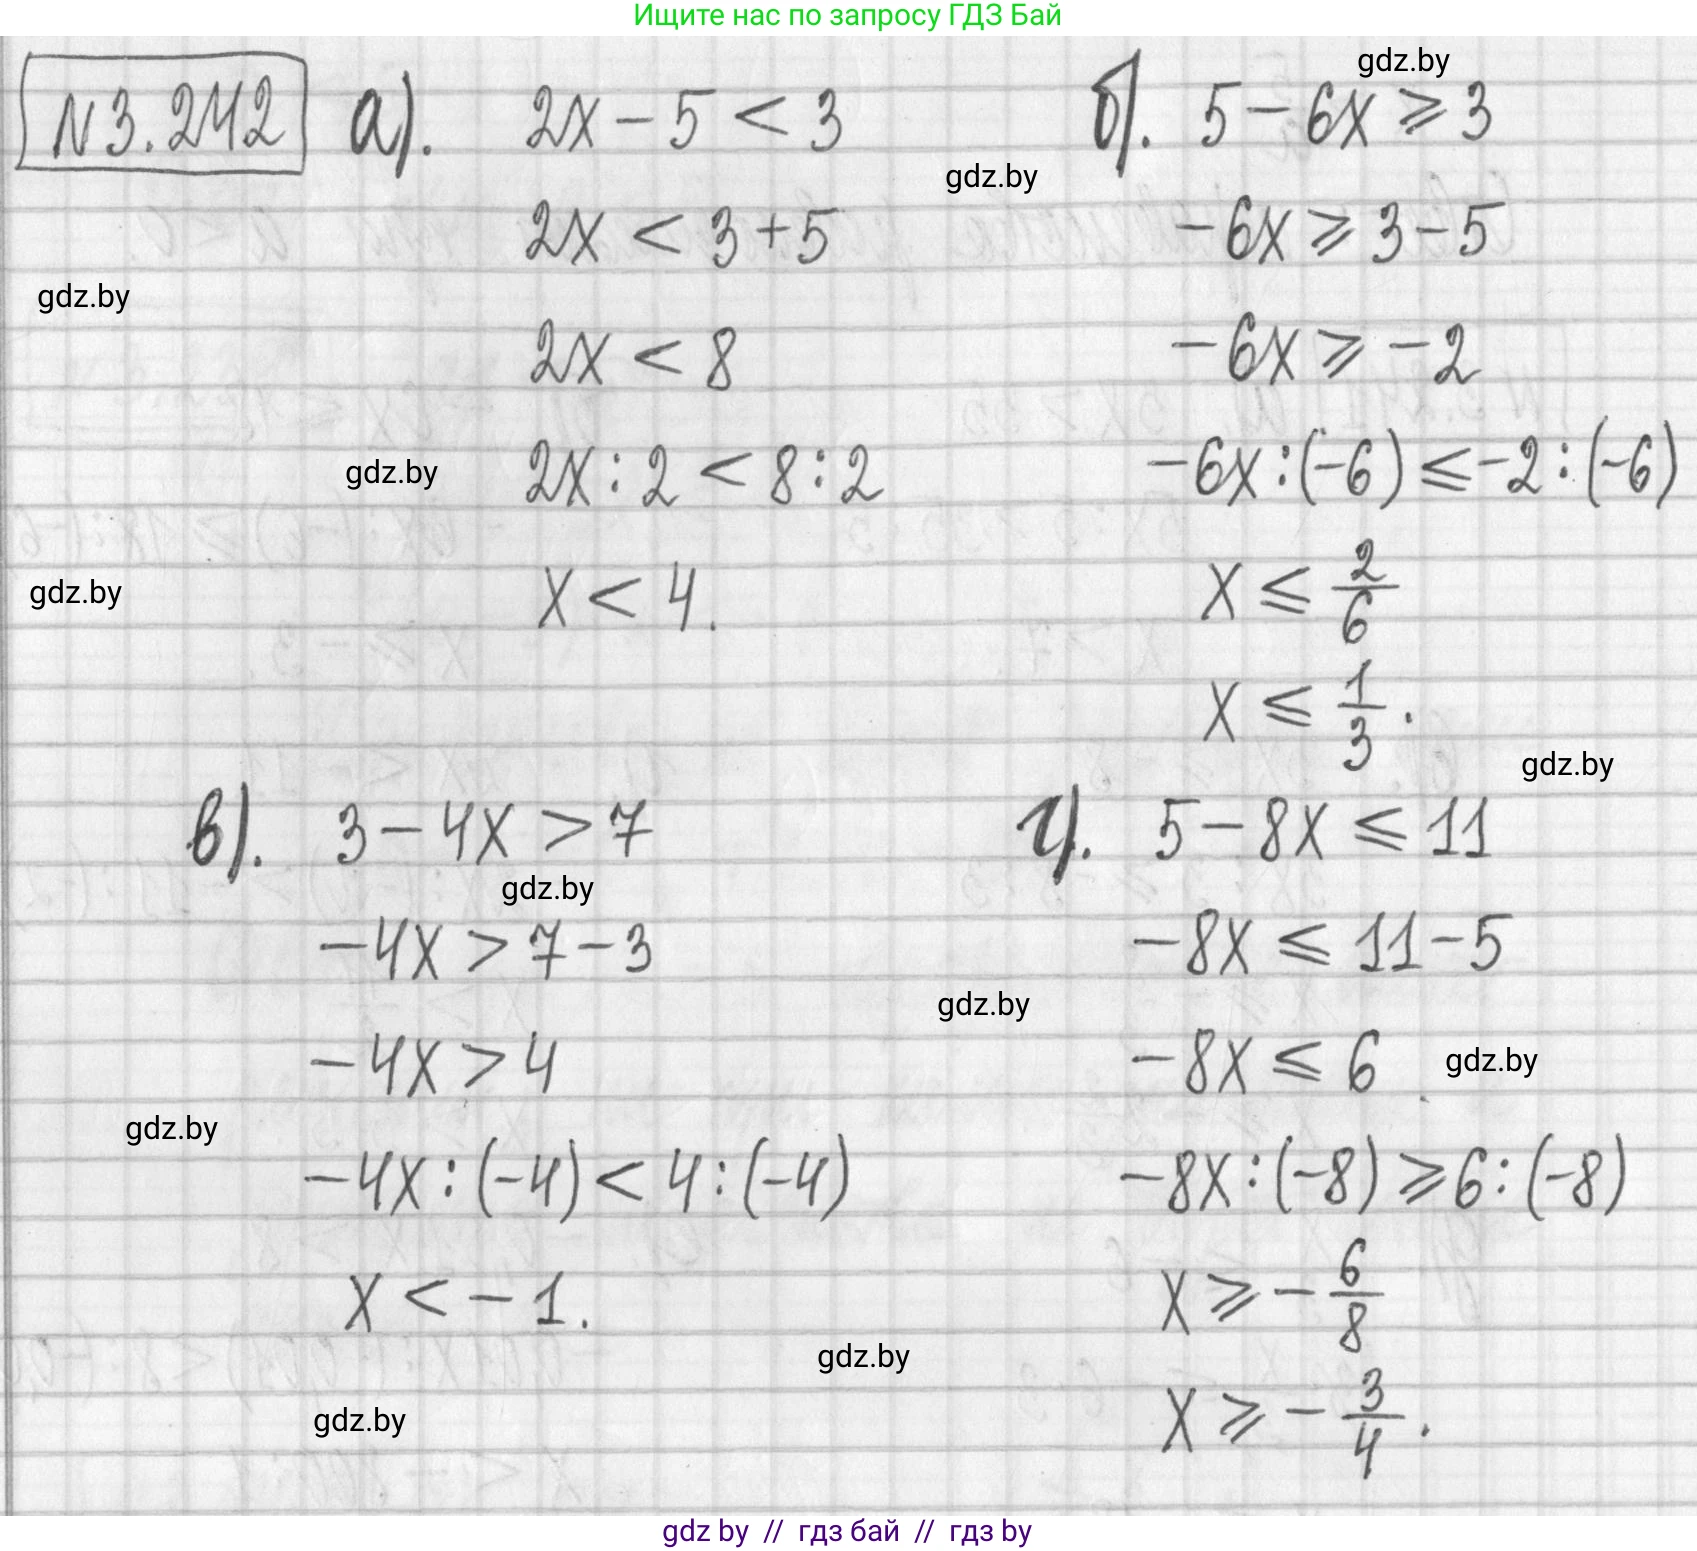 Ищите нас по запросу ГДЗ Бай
N3.242
а). 2x - 5 < 3
2x < 3 + 5
2x < 8
2x : 2 < 8 : 2
x < 4.
б). 5 - 6x ⩾ 3
-6x ⩾ 3 - 5
-6x ⩾ -2
-6x : (-6) ⩽ -2 : (-6)
x ⩽ 2/6
x ⩽ 1/3.
в). 3 - 4x > 7
-4x > 7 - 3
-4x > 4
-4x : (-4) < 4 : (-4)
x < -1.
г). 5 - 8x ⩽ 11
-8x ⩽ 11 - 5
-8x ⩽ 6
-8x : (-8) ⩾ 6 : (-8)
x ⩾ -6/8
x ⩾ -3/4.
gdz.by
gdz.by
gdz.by
gdz.by
gdz.by
gdz.by
gdz.by
gdz.by
gdz.by
gdz.by
gdz.by
gdz.by
gdz by // гдз бай // гдз by